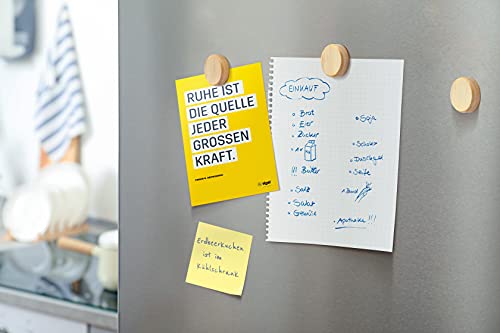 RUHE IST
DIE QUELLE
JEDER
GROSSEN
KRAFT.
EINKAUF
Brot
Eier
Zucker
!!! Butter
Salz
Salat
Gemüse
Soja
Duschgel
Seife
Apotheke!!!
Erdbeerkuchen
ist im
Kühlschrank